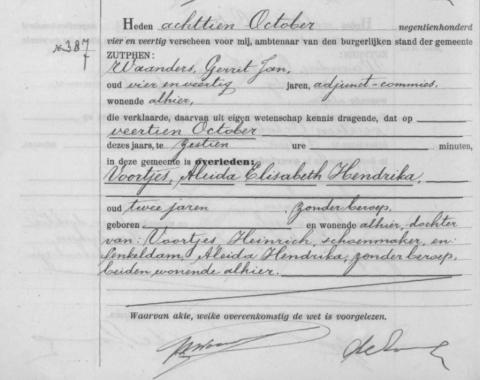 Heden achttien October negentienhonderd
No 387
vier en veertig verscheen voor mij, ambtenaar van den burgerlijken stand der gemeente
ZUTPHEN:
Waanders, Gerrit Jan,
oud vier en veertig jaren, adjunct-commies,
wonende alhier,
die verklaarde, daarvan uit eigen wetenschap kennis dragende, dat op
veertien October
dezes jaars, te zestien ure minuten,
in deze gemeente is overleden:
Voortjes, Aleida Elisabeth Hendrika,
oud twee jaren, zonder beroep,
geboren en wonende alhier, dochter
van: Voortjes, Heinrich, schoenmaker, en:
Senkeldam, Aleida Hendrika, zonder beroep,
beiden wonende alhier.
Waarvan akte, welke overeenkomstig de wet is voorgelezen.